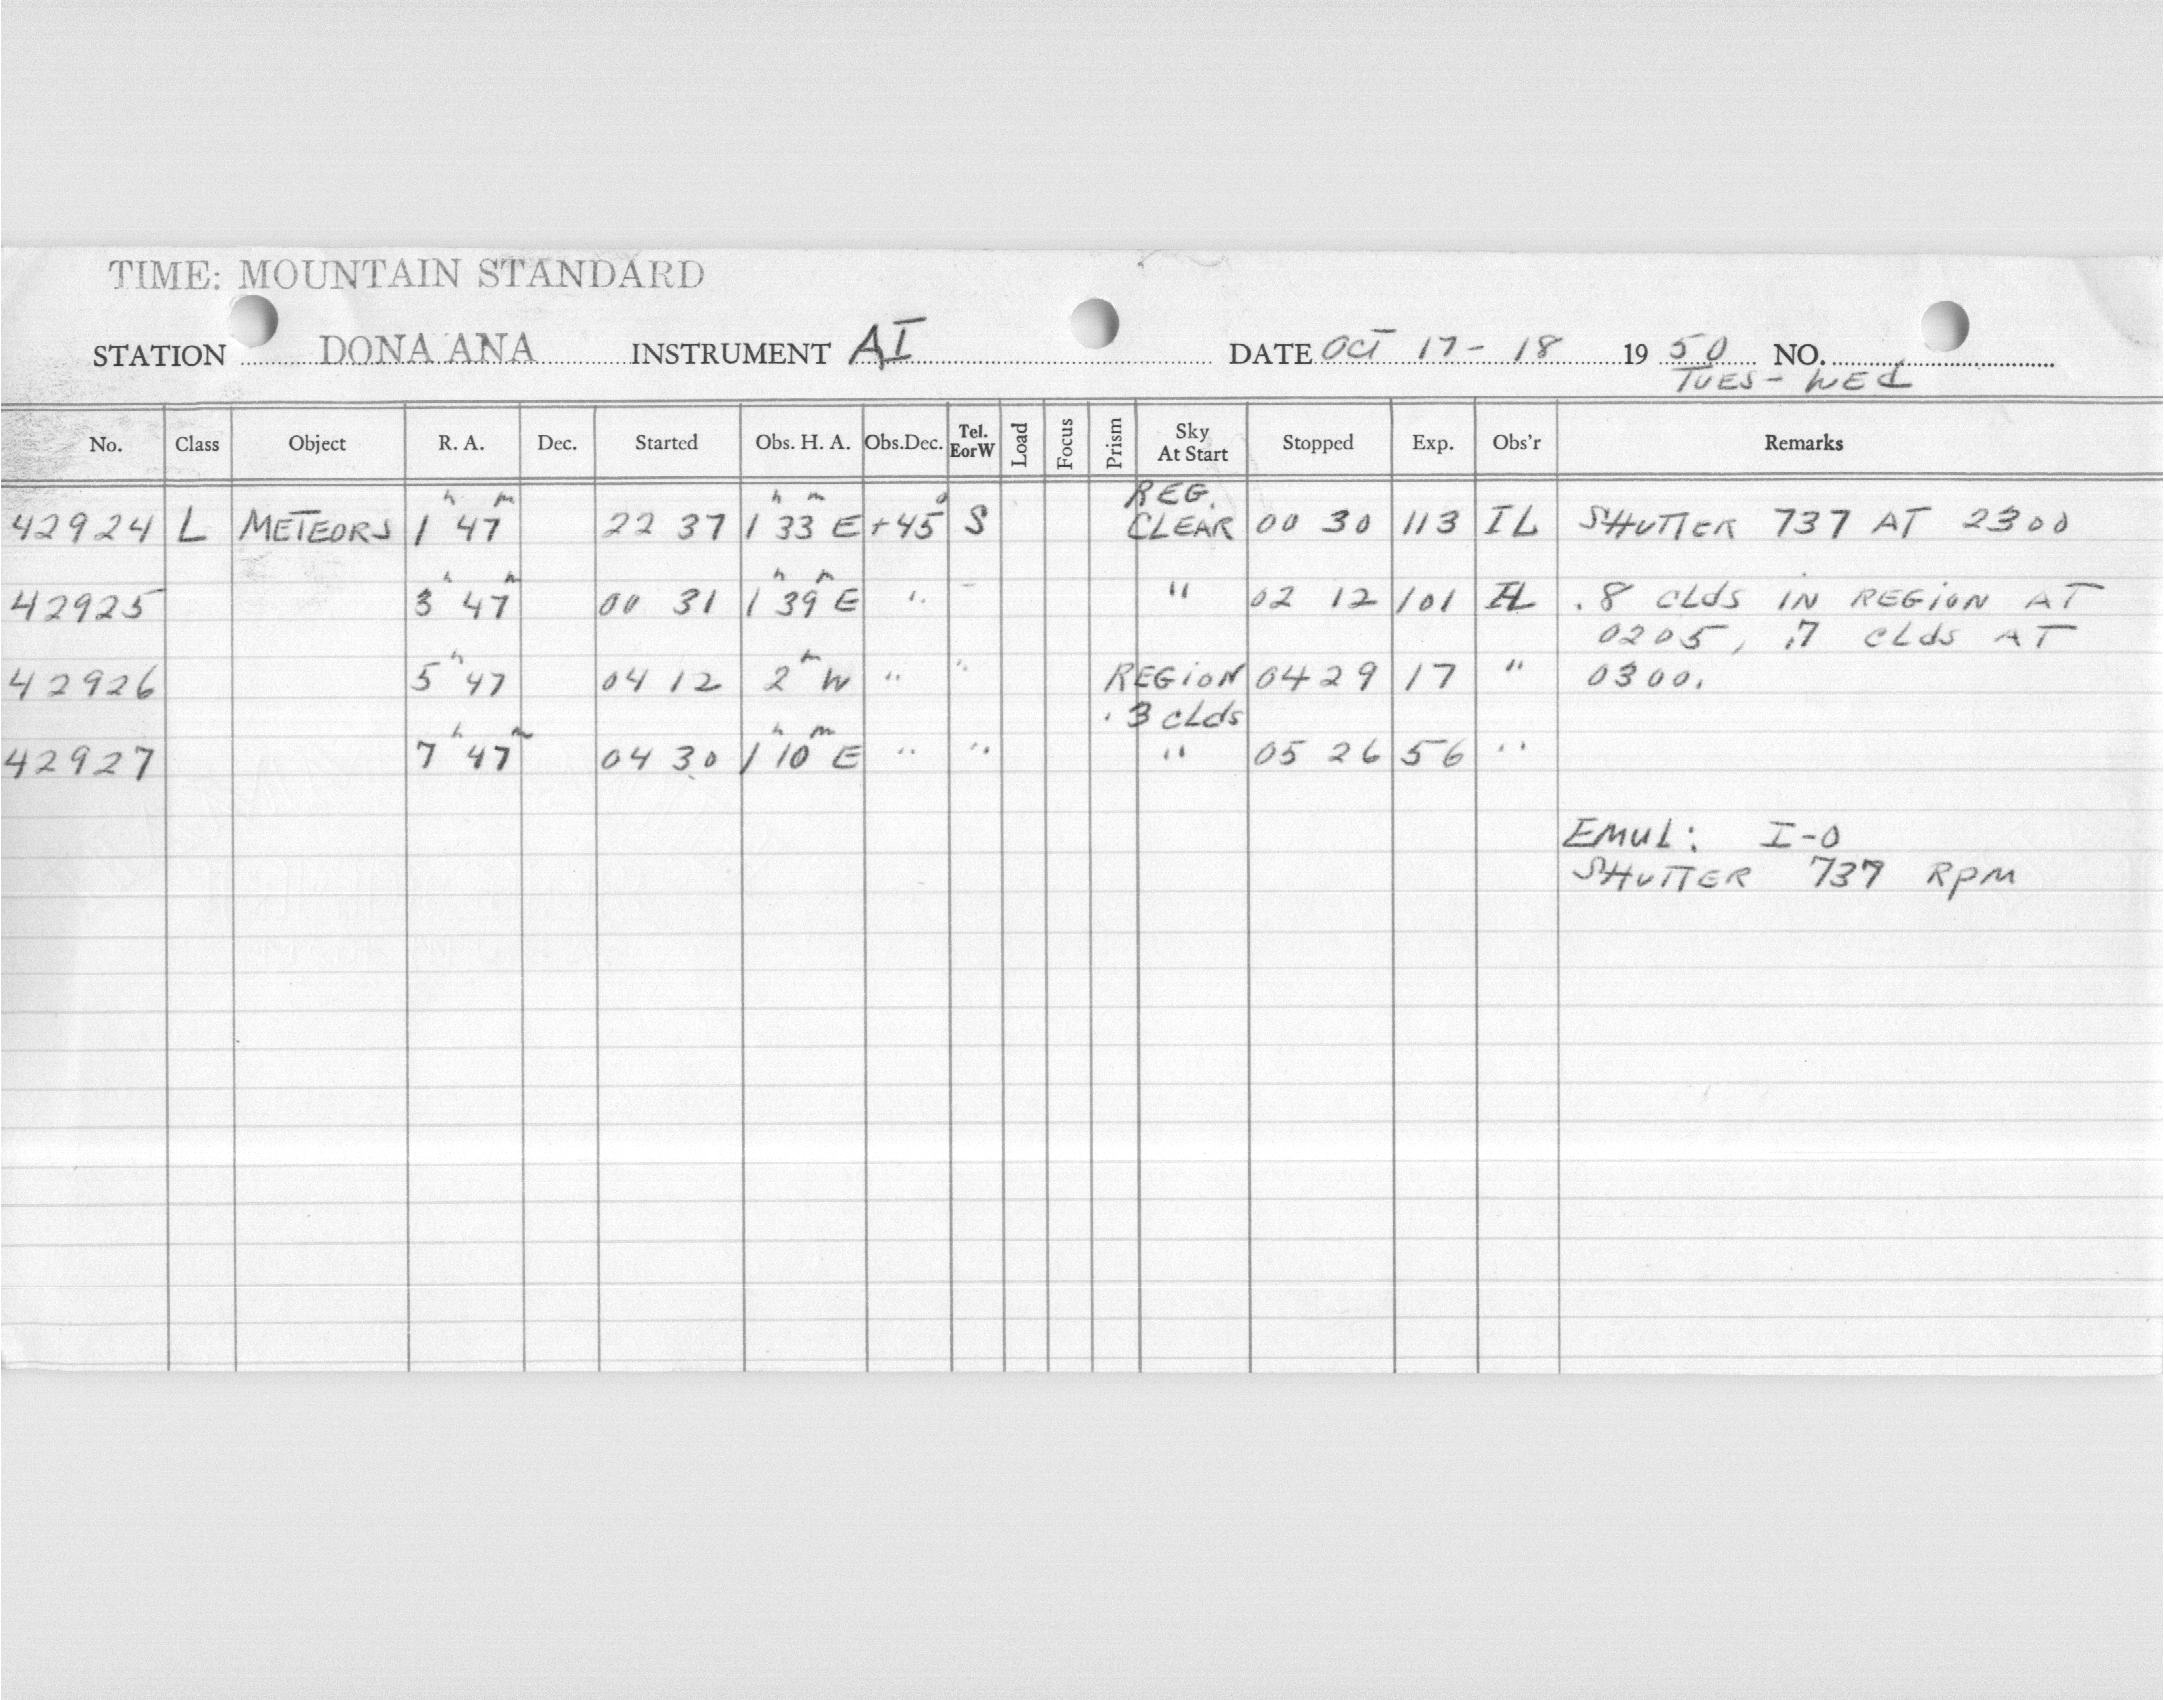 TIME: MOUNTAIN STANDARD
STATION DONA ANA INSTRUMENT AI DATE OCT 17-18 1950 NO.
TUES-WED
No. Class Object R. A. Dec. Started Obs. H. A. Obs.Dec. Tel. EorW Load Focus Prism Sky At Start Stopped Exp. Obs'r Remarks
42924 L METEORS 1h 47m 22 37 1h 33m E +45° S REG. CLEAR 00 30 113 IL SHUTTER 737 AT 2300
42925 3h 47m 00 31 1h 39m E " " 02 12 101 IL .8 CLdS IN REGION AT
0205, .7 CLdS AT
42926 5h 47 04 12 2m W " " REGION 04 29 17 " 0300.
.3 CLdS
42927 7h 47m 04 30 1h 10m E " " " 05 26 56 "
EMUL: I-O
SHUTTER 737 RPM